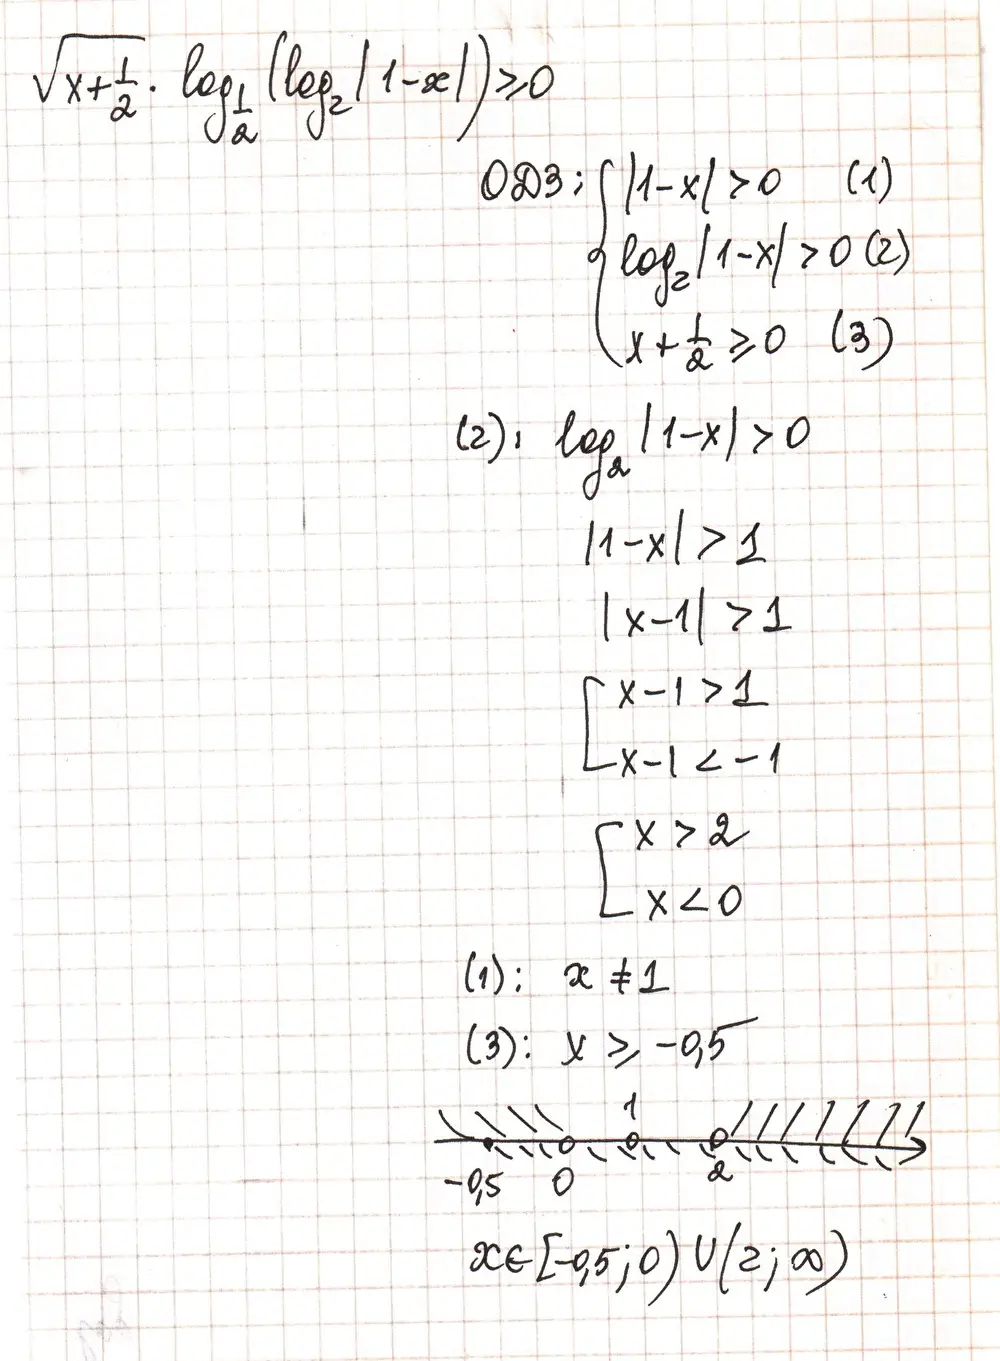 √(x+1/2) · log_{1/2}(log_2|1-x|) ≥ 0
ОДЗ: { |1-x| > 0 (1)
log_2|1-x| > 0 (2)
x + 1/2 ≥ 0 (3)
(2): log_2|1-x| > 0
|1-x| > 1
|x-1| > 1
[ x-1 > 1
x-1 < -1
[ x > 2
x < 0
(1): x ≠ 1
(3): x ≥ -0,5
1
-0,5 0 2
x ∈ [-0,5; 0) ∪ (2; ∞)